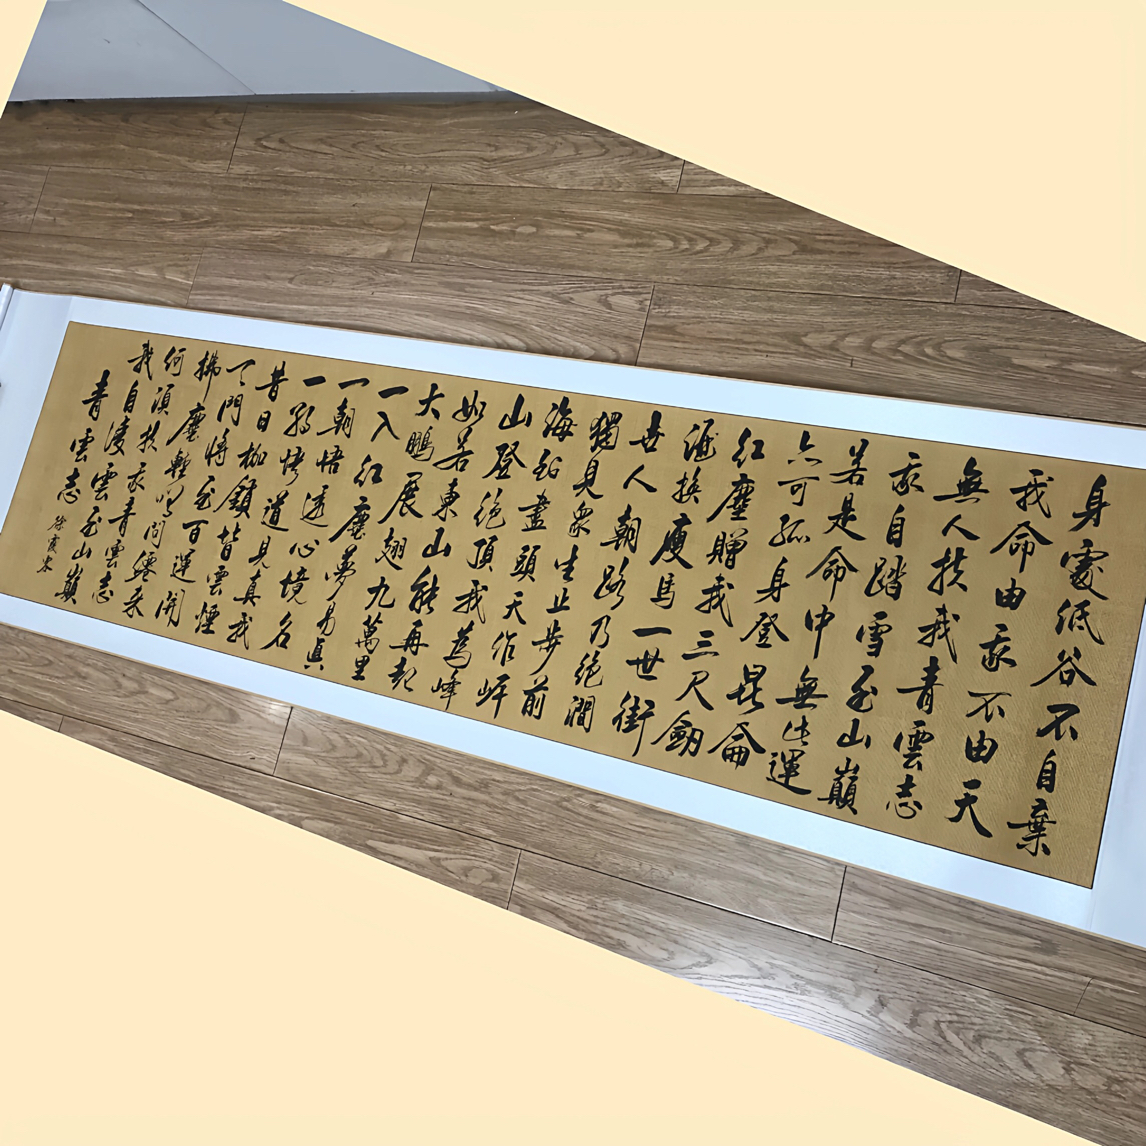 身處低谷不自棄
我命由我不由天
無人扶我青雲志
我自踏雪至山巔
若是命中無此運
亦可孤身登昆侖
紅塵贈我三尺劍
酒換瘦馬一世街
世人朝路乃絕澗
獨見衆生止步前
海到盡頭天作岸
山登絕頂我為峰
如若東山能再起
大鵬展翅九萬里
一入紅塵夢易真
一朝悟透心境名
一朝悟道見真我
昔日枷鎖皆雲煙
天門將至百運開
拂塵輕問來
何須扶我青雲志
我自凌雲至山巔
青雲志 徐霞客